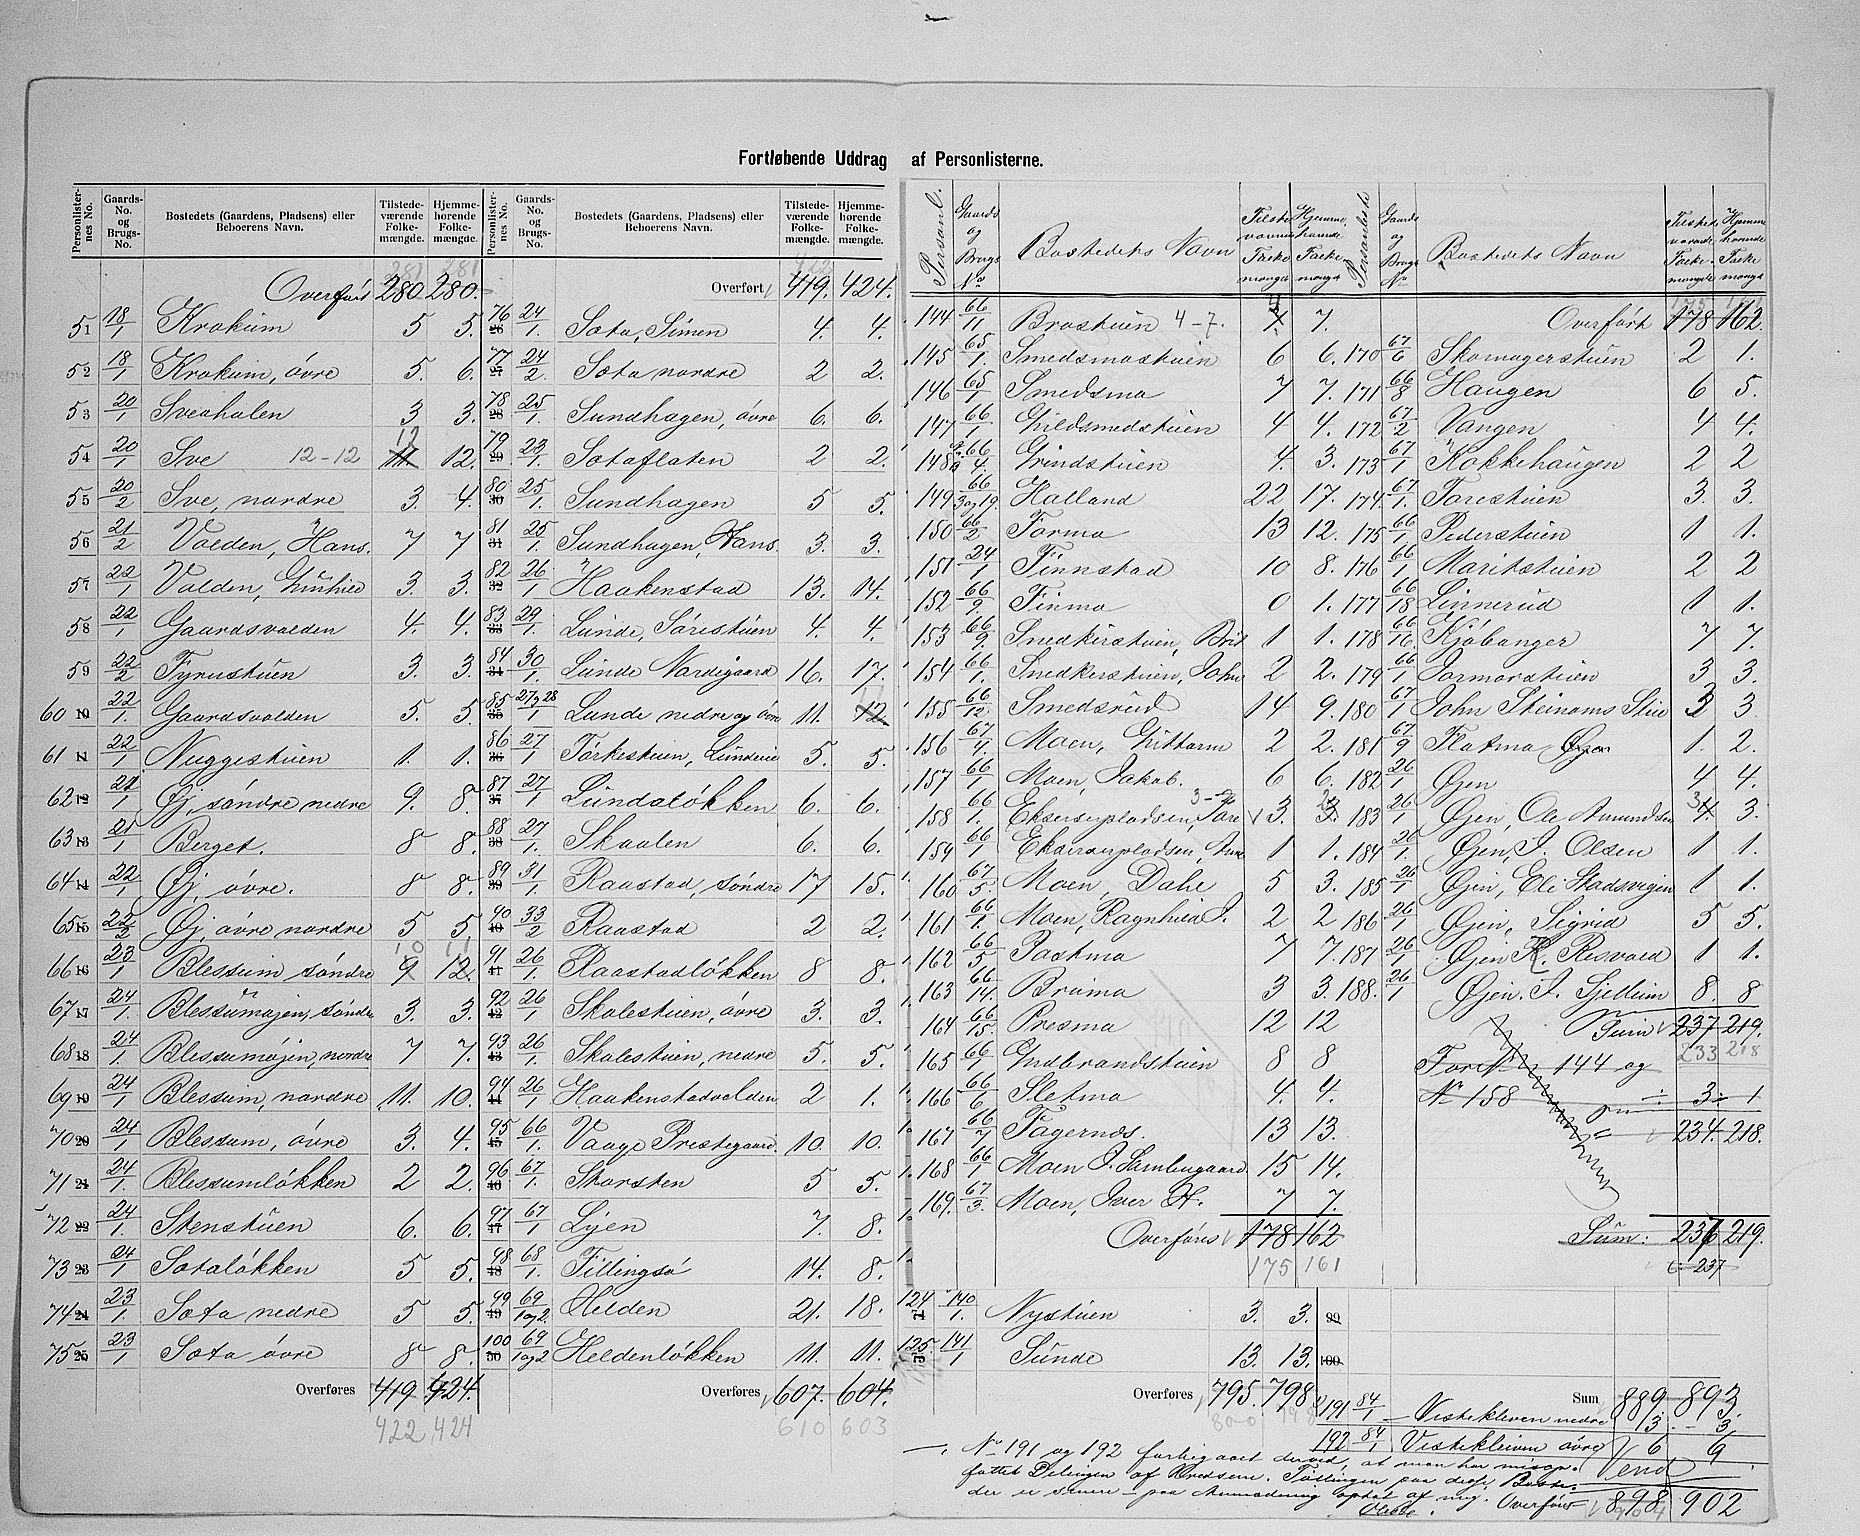 Fortløbende Uddrag af Personlisterne.
Personlisternes No. Gaards-No. og Brugs-No. Bostedets (Gaardens, Pladsens) eller Beboerens Navn. Tilstedeværende Folkemængde. Hjemmehørende Folkemængde.
Overført 280 280
281 281
51 18/1 Krokum 5 5.
52 18/1 Krokum, øvre 5. 6.
53 20/1 Sveahalen 3 3.
54 20/1 Sve 12-12 11 12 12.
55 20/2 Sve, nordre 3. 4.
56 21/2 Valden, Hans. 7 7
57 22/1 Valden, 3. 3.
58 22/1 Gaardsvolden 4. 4.
59 22/2 Fyrustuen 3. 3.
60 10 22/1. Gaardsvolden 5. 5.
61 11 22/1 Nuggestuen 1. 1.
62 12 21/1 Øj, søndre nedre 9. 8.
63 13 21/1 Berget. 8 8.
64 14 22/1 Øj, øvre. 8 8.
65 15 22/2 Øj, øvre nordre 5 5
66 16 23/1 Blessum søndre 9 12. 10 11
67 17 24/1. Blessumøjen, søndre 3. 3.
68 18 24/1. Blessumøjen, nordre 7 7.
69 19 24/1 Blessum, nordre 11. 10.
70 20 24/1 Blessum, øvre 3. 4.
71 21 24/1. Blessumløkken 2 2.
72 22 24/1. Stenstuen 6. 6.
73 23 24/1 Sotaløkken 5 5.
74 24 23/1. Sota nedre 5 5.
75 25 23/1 Sota øvre 8 8.
Overføres 419 424.
422 424
Personlisternes No. Gaards-No. og Brugs-No. Bostedets (Gaardens, Pladsens) eller Beboerens Navn. Tilstedeværende Folkemængde. Hjemmehørende Folkemængde.
422
Overført 419. 424.
76 26 24/1. Sota, Simen 4. 4.
77 27 24/2. Sota nordre 2 2.
78 28 25/1. Sundhagen, øvre 6. 6.
79 29 23/1. Sotaflaten 2 2.
80 30 25/1. Sundhagen 5 5.
81 31 25/1. Sundhagen, Hans. 3. 3.
82 32 26/1 Haakenstad 13. 14.
83 33 29/1. Lunde, Sørestuen 4. 4.
84 34 30/1. Lunde Nordigaard 16. 17.
85 35 27og28/1 Lunde nedre og øvre 11. 12
86 36 27/1 Torkestuen, 5. 5.
87 37 27/1 Lundaløkken 6. 6.
88 38 27/1. Skaalen 6. 6.
89 39 31/1. Raastad, søndre 17 15.
90 40 33/2 Raastad 2 2.
91 41 26/1. Raastadløkken 8 8.
92 42 26/1 Skolestuen, øvre 3. 3.
93 43 26/1 Skolestuen, nedre 5. 5.
94 44 26/1 Haakenstadvolden 2 1.
95 45 66/1. Vaage Prestegaard. 10. 10.
96 46 67/1. Skorsten 5 5.
97 47 67/1 Lyen 7. 8.
98 48 68/1. Tillingsø 14. 8.
99 49 69/1og2. Helden 21. 18.
100 50 69/1og2 Heldenløkken 11. 11.
Overføres 607. 604.
610 603
Personl. Gaards og Brugs No Bostedets Navn
144 66/11 Brostuen 4-7. 4 7.
145 65/1. Smedsmostuen 6 6.
146 65/1 Smedsmo 7 7.
147 66/1 Guldsmedstuen 4 4.
148 66/4. Grindstuen 4. 3.
149 66/3og19. Halland 22 17.
150 66/2 Formo 13 12.
151 24/1 Finnstad 10 8.
152 66/9. Finmo 0 1.
153 66/9. Snedkerstuen, Brit 1 1.
154 66/1. Snedkerstuen, John 2 2.
155 66/12. Smedsrud 14 9.
156 67/4. Moen, 2 2.
157 66/1 Moen, Jakob. 6 6.
158 66/1. Ekserserpladsen, Tore 3. 3.
159 66/1 Ekserserpladsen, 1 1.
160 67/5. Moen, Dahl 5 3.
161 66/1. Moen, Ragnhild J. 2 2
162 66/5 Postmo 7 7.
163 66/14. Bruma 3 3.
164 66/15. Presmo 12 12
165 66/1 Gudbrandstuen 8 8
166 66/6 Sletmo 4. 4.
167 66/7 Fagernæs. 13 13.
168 66/1 Moen J. Samlengaard. 15 14.
169. 67/3. Moen, Iver H. 7 7.
Overføres 178 162
175 161
124 140/1. Nystuen 3. 3.
125. 141/1 Sunde 13. 13.
Overføres 795. 798
800 798
Personliste Gaards og Brugs No Bostedets Navn
Overført 178 162.
170 67/6 Skomagerstuen 2 1.
171 66/8 Haugen 6 5.
172 67/2 Vangen 4 4.
173 67/1 Kokkehaugen 2 2
174. 67/1. Torestuen 3. 3.
175 66/1 Pederstuen 1 1.
176 66/1 Maritstuen 2 2
177 66/18 Linnerud 1 1.
178 66/16. Kjøbanger 7 7.
179 66/1 Jarmorstuen 3 3.
180 67/1 John Steinoms Stue 3 3
181 67/9 Flatmo 1. 2.
182 26/1 Øyen 4 4.
183 26/1. Øyen, Ole Amundsen 3 4. 3.
184 26/1. Øyen, J. Olsen 1 1.
185 26/1 Øyen, Eli Stadsvigen 1 1.
186 26/1 Øyen, Sigrid 5 5.
187 26/1 Øyen K. Risvold 1 1.
188. 26/1 Øyen. J. Sjellum 8. 8
Sum 237 219.
233 218
For No 144 og
No 158 ÷ 3 ÷ 1
234. 218.
Sum: 236 219.
237
99
100
Sum 889 893.
191 84/1 Vistekleven nedre 3. 3,
192 84/1 Vistekleiven øvre 6 6
Vend
No 191 og 192 forbigaaet derved, at man har misop-
fattet Delingen af Kredsene. Tællingen paa disse Boste-
der er senere paa Anmodning optat af mig. Overføres 898 902
904